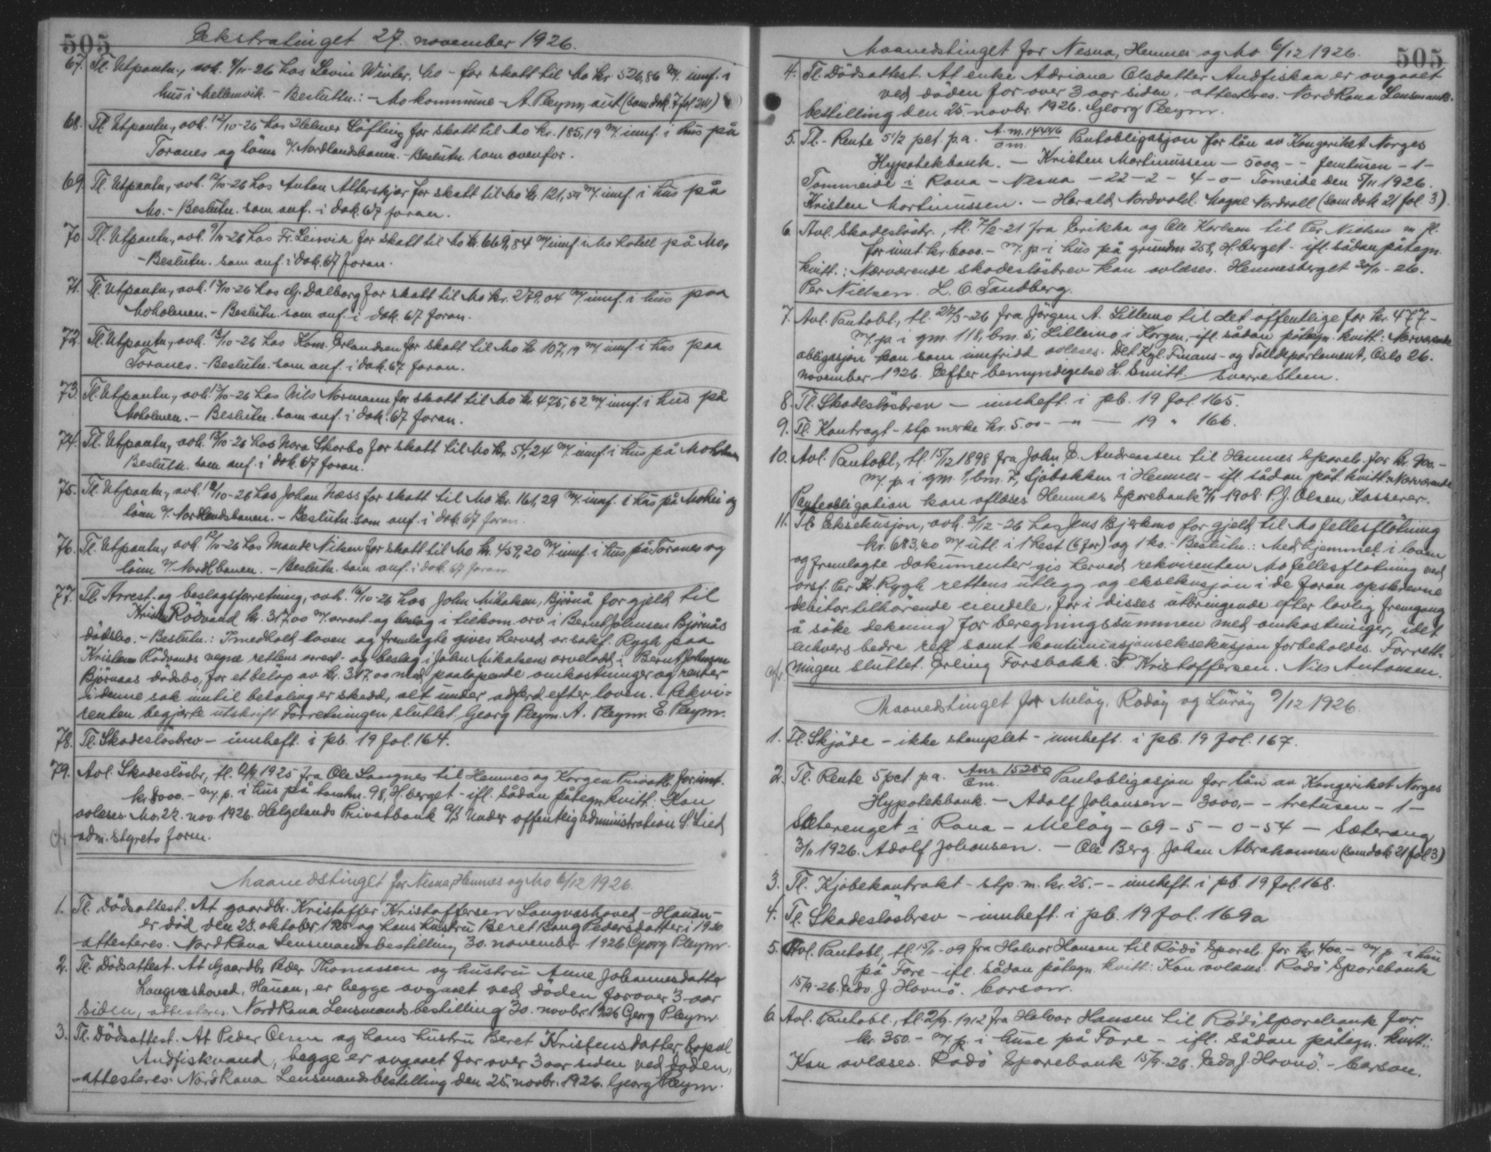 505
Ekstratinget 27. november 1926.
67. Tl. Utpantn., avh. 9/11-26 hos Levin Winter, Mo - for skatt til Mo kr. 526,86 m/ innf. i
hus i Mellemvik. - Beslutn.: - Mo kommune - A. Pleym, aut (som dok 7 fol 241)
68. Tl. Utpantn., avh. 12/10-26 hos Helmer Löfling for skatt til Mo kr. 185,19 m/ innf. i hus på
Toranes og lönn v/ Nordlandsbanen. - Beslutn. som ovenfor.
69. Tl. Utpantn., avh. 12/10-26 hos Anton Alterskjær for skatt til Mo kr. 121,54 m/ innf. i hus på
Mo. - Beslutn. som anf. i dok. 67 foran.
70. Tl. Utpantn., avh. 9/10-26 hos Fr. Leirvik for skatt til Mo kr. 669,84 m/ innf. i Mo hotell på Mo.
- Beslutn. som anf. i dok. 67 foran.
71. Tl. Utpantn., avh. 12/10-26 hos Dalborg for skatt til Mo kr. 279,04 m/ innf. i hus paa
Moholmen. - Beslutn. som anf. i dok. 67 foran.
72. Tl. Utpantn., avh. 12/10-26 hos Konr. Erlandsen for skatt til Mo kr. 107,19 m/ innf. i hus paa
Toranes. - Beslutn. som anf. i dok. 67 foran.
73. Tl. Utpantn., avh. 12/10-26 hos Nils Normann for skatt til Mo kr. 475,62 m/ innf. i hus på
Moholmen. - Beslutn. som anf. i dok. 67 foran.
74. Tl. Utpantn., avh. 12/10-26 hos Nora Skorbo for skatt til Mo kr. 54,24 m/ innf. i hus på Moholmen
Beslutn. som anf. i dok. 67 foran.
75. Tl. Utpantn., avh. 12/10-26 hos Johan Næss for skatt til Mo kr. 161,29 m/ innf. i hus på Mo og
lönn v/ Nordlandsbanen. - Beslutn. som anf. i dok. 67 foran.
76. Tl. Utpantn., avh. 12/10-26 hos Nilsen for skatt til Mo kr. 459,20 m/ innf. i hus på Toranes og
lönn v/ Nordl.banen. - Beslutn. som anf. i dok. 67 foran.
77. Tl. Arrest. og beslagsforretning, avh. 16/10-26 hos John Mikalsen, Bjørnå for gjeld til
Krist. Rödvand kr. 317,00 m/ arrest og beslag i tilkom. arv i Bernt Johnsen Bjørnås
dödsbo. - Beslutn.: I medhold av loven og fremlagte gives herved orsakf. Rygh paa
Kristen Rödvands vegne rettens arrest- og beslag i John Mikalsens arvelodd i Bernt Johnsen
Bjørnaas dödsbo, for et beløp av kr. 317.00 med paaløpende omkostninger og renter
i denne sak inntil betaling er skedd, alt under adferd efter loven. Rekvi=
renten begjærte utskrift. Forretningen sluttet. Georg Pleym. A. Pleym. E. Pleym.
78. Tl. Skadeslösbrev - innheft. i pb. 19 fol. 164.
79. Avl. Skadeslösbr., tl. 1925 fra Ole Langnes til Hemnes og Korgen Privatb. for innt.
kr. 8000.- m/ p. i hus på tomtnr. 98, H.berget - ifl. sådan påtegn. kvitt.: Kan
avlæses. Mo. 22. nov. 1926. Helgelands Privatbank A/S Under offentlig administration
adm. styrets form.
Maanedstinget for Nesna, Hemnes og Mo 6/12 1926.
1. Tl. Dödsattest. At gaardbr. Kristoffer Kristoffersen Langvashoved - Hauan -
er död den 23. oktober 1925 og hans hustru Beret Bang Pedersdatter i 1920
attesteres. Nord Rana Lensmandsbestilling 30. november 1926 Georg Pleym.
2. Tl. Dödsattest. At Gaardbr. Peder Thomassen og hustru Anne Johannesdatter
Langvashoved, Hauan, er begge avgaaet ved döden for over 3 aar
siden, attesteres. Nord Rana Lensmandsbestilling 30. novbr. 1926 Georg Pleym
3. Tl. Dödsattest. At Peder Olsen og hans hustru Beret Kristensdatter bopæl
Andfiskvand, begge er avgaaet for over 3 aar siden ved döden,
attesteres. Nord Rana Lensmandsbestilling den 25. novbr. 1926. Georg Pleym.
505
Maanedstinget for Nesna, Hemnes og Mo 6/12 1926.
4. Tl. Dödsattest. At enke Adriana Olsdatter Andfiskaa er avgaaet
ved døden for over 3 aar siden, attesteres. Nord Rana Lensmands-
bestilling den 25. novbr. 1926. Georg Pleym.
5. Tl. - Rente 5 1/2 pct. p.a. A. nr. 14446 Pantobligasjon for lån av Kongeriket Norges
Hypotekbank. - Kristen Mortinussen - 5000 - - femtusen - 1 -
Tommeide i Rana - Nesna - 22 - 2 - 4 - 0 - Tömeide den 5/11 1926.
Kristen Mortinussen. - Harald Nordvold. Magne Nordvoll (som dok 21 fol 3).
6. Avl. Skadeslösbr., tl. 7/12-21 fra Erikka og Ole Karlsen til Per Nielsen m fl.
for innt. kr. 6000.- m/ p. i hus på grundnr. 258, H.berget - ifl. sådan påtegn.
kvitt.: Nærværende skadeslösbrev kan avlæses. Hemnesberget 30/11-26.
Per Nielsen. L. C. Sandberg.
7. Avl. Pantobl., tl. 29/3-26 fra Jörgen A. Lillemo til det offentlige for kr. 477.-
m/ p. i gnr. 118, bnr. 5, Lillemo i Korgen, ifl. sådan påtegn. kvitt.: Nærværende
obligasjon kan som innfridd avlæses. Det Kgl. Finans- og Tolldepartement, Oslo 26.
november 1926. Efter bemyndigelse L. Smitt. Sverre Steen.
8. Tl. Skadeslösbrev - innheft. i pb. 19 fol. 165.
9. Tl. Kontragt - stp. merke kr. 5.00 - - " - 19 " 166.
10. Avl. Pantobl., tl. 15/12 1898 fra John D. Andreassen til Hemnes Spareb. for kr. 900.-
m/ p. i gnr. 1, bnr. 7, Sjöbakken i Hemnes - ifl. sådan påt. kvitt.: Nærværende
Panteobligation kan aflæses Hemnes Sparebank 1908. P. J. Olsen, Kasserer.
11. Tl. Eksekusjon, avh. 2/12-26 hos Jens Bjerkmo for gjeld til Mo fellesflötning
kr. 683,60 m/ utl. i 1 hest (6 år) og 1 ko. - Beslutn.: Med hjemmel i loven
og fremlagte dokumenter gis herved rekvirenten Mo fellesflötning ved
orsf. Chr. K. Rygh rettens utlegg og eksekusjon i de foran opskrevne
debitor tilhörende eiendele, for i disses utbringende efter lovlig fremgang
å söke dekning for beregningssummen med omkostninger, idet
enhvers bedre rett samt kontinuasjonseksekusjon forbeholdes. Forrett-
ningen sluttet. Erling Forsbakk. P. Kristoffersen. Nils Antonsen.
Maanedstinget for Meløy, Rödøy og Lurøy 9/12 1926.
1. Tl. Skjöde - ikke stemplet - innheft. i pb. 19 fol. 167.
2. Tl. Rente 5 pct. p.a. Anr. 15280 Pantobligasjon for lån av Kongeriket Norges
Hypotekbank. - Adolf Johansen - 3000,- - tretusen - 1 -
Sæterenget i Rana - Meløy - 69 - 5 - 0 - 54 - Sæterang
3/11 1926. Adolf Johansen. - Ole Berg Johan Abrahamsen (som dok 21 fol 3)
3. Tl. Kjöbekontrakt - stp. m. kr. 25.- - innheft i pb. 19 fol. 168.
4. Tl. Skadeslösbrev - innheft. i pb. 19 fol. 169a
5. Avl. Pantobl., tl. 15/7-09 fra Halvor Hansen til Rödö Spareb. for kr. 400.- m/ p. i hus
på Fore - ifl. sådan påtegn. kvitt.: Kan avlæses. Rödö Sparebank
15/9-26. J Hovnö. Carson.
6. Avl. Pantobl., tl. 2/9 1912 fra Halvor Hansen til Rödö Sparebank for
kr. 350.- m/ p. i huse på Fore - ifl. sådan påtegn. kvitt.:
Kan avlæses. Rödö Sparebank 15/9-26. J Hovnö. - Carson.